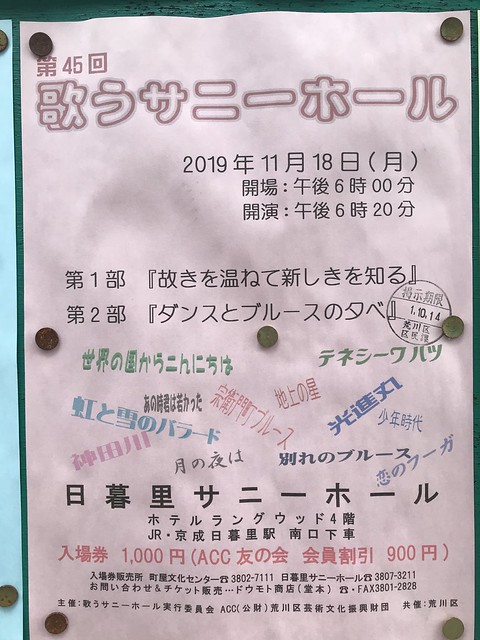 第45回
歌うサニーホール
2019年11月18日(月)
開場:午後6時00分
開演:午後6時20分
第1部 『故きを温ねて新しきを知る』
第2部 『ダンスとブルースの夕べ』
掲示期限
1.10.14
荒川区
世界の国からこんにちは
テネシーワルツ
あの時君は若かった
宗衛門町ブルース
地上の星
光進丸
虹と雪のバラード
少年時代
神田川
月の夜は
別れのブルース
恋のフーガ
日暮里サニーホール
ホテルラングウッド4階
JR・京成日暮里駅 南口下車
入場券 1,000円(ACC友の会 会員割引 900円)
入場券販売所 町屋文化センター☎3802-7111 日暮里サニーホール☎3807-3211
お問い合わせ&チケット販売…ドウモト商店(堂本) ☎・FAX3801-2828
主催:歌うサニーホール実行委員会 ACC(公財)荒川区芸術文化振興財団 共催:荒川区